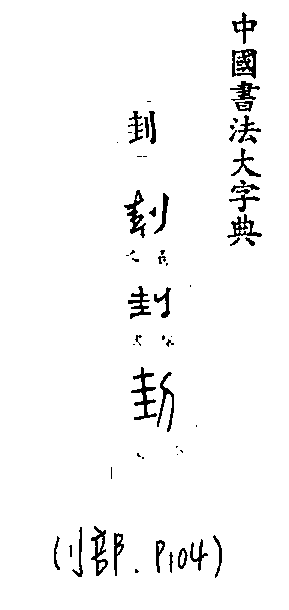 中國書法大字典
刲
刲
刲
刲
(刂部.P104)